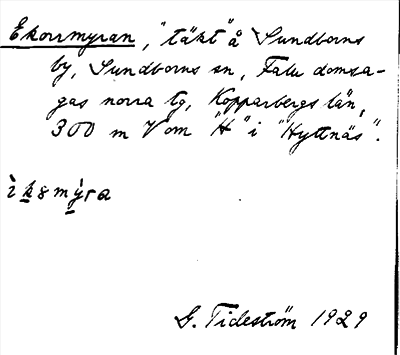 Ekorrmyran, "täkt" å Sundborns
by, Sundborns sn, Falu domsa-
gas norra tg, Kopparbergs län,
300 m V om "H" i "Hyttnäs".
ìk8mỳra
G. Tideström 1929